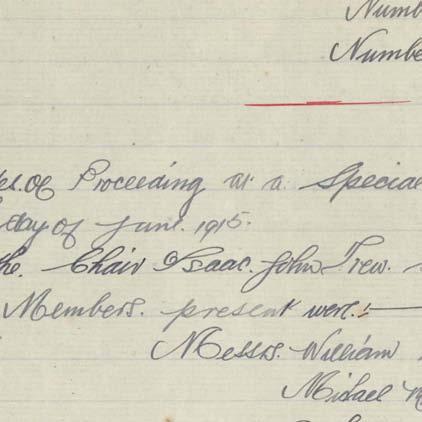 Numb
Numbe
es. of Proceeding at a Special
day of June. 1915.
he. Chair Isaac. John Trew.
Members. present were:
Messrs. William
Misael